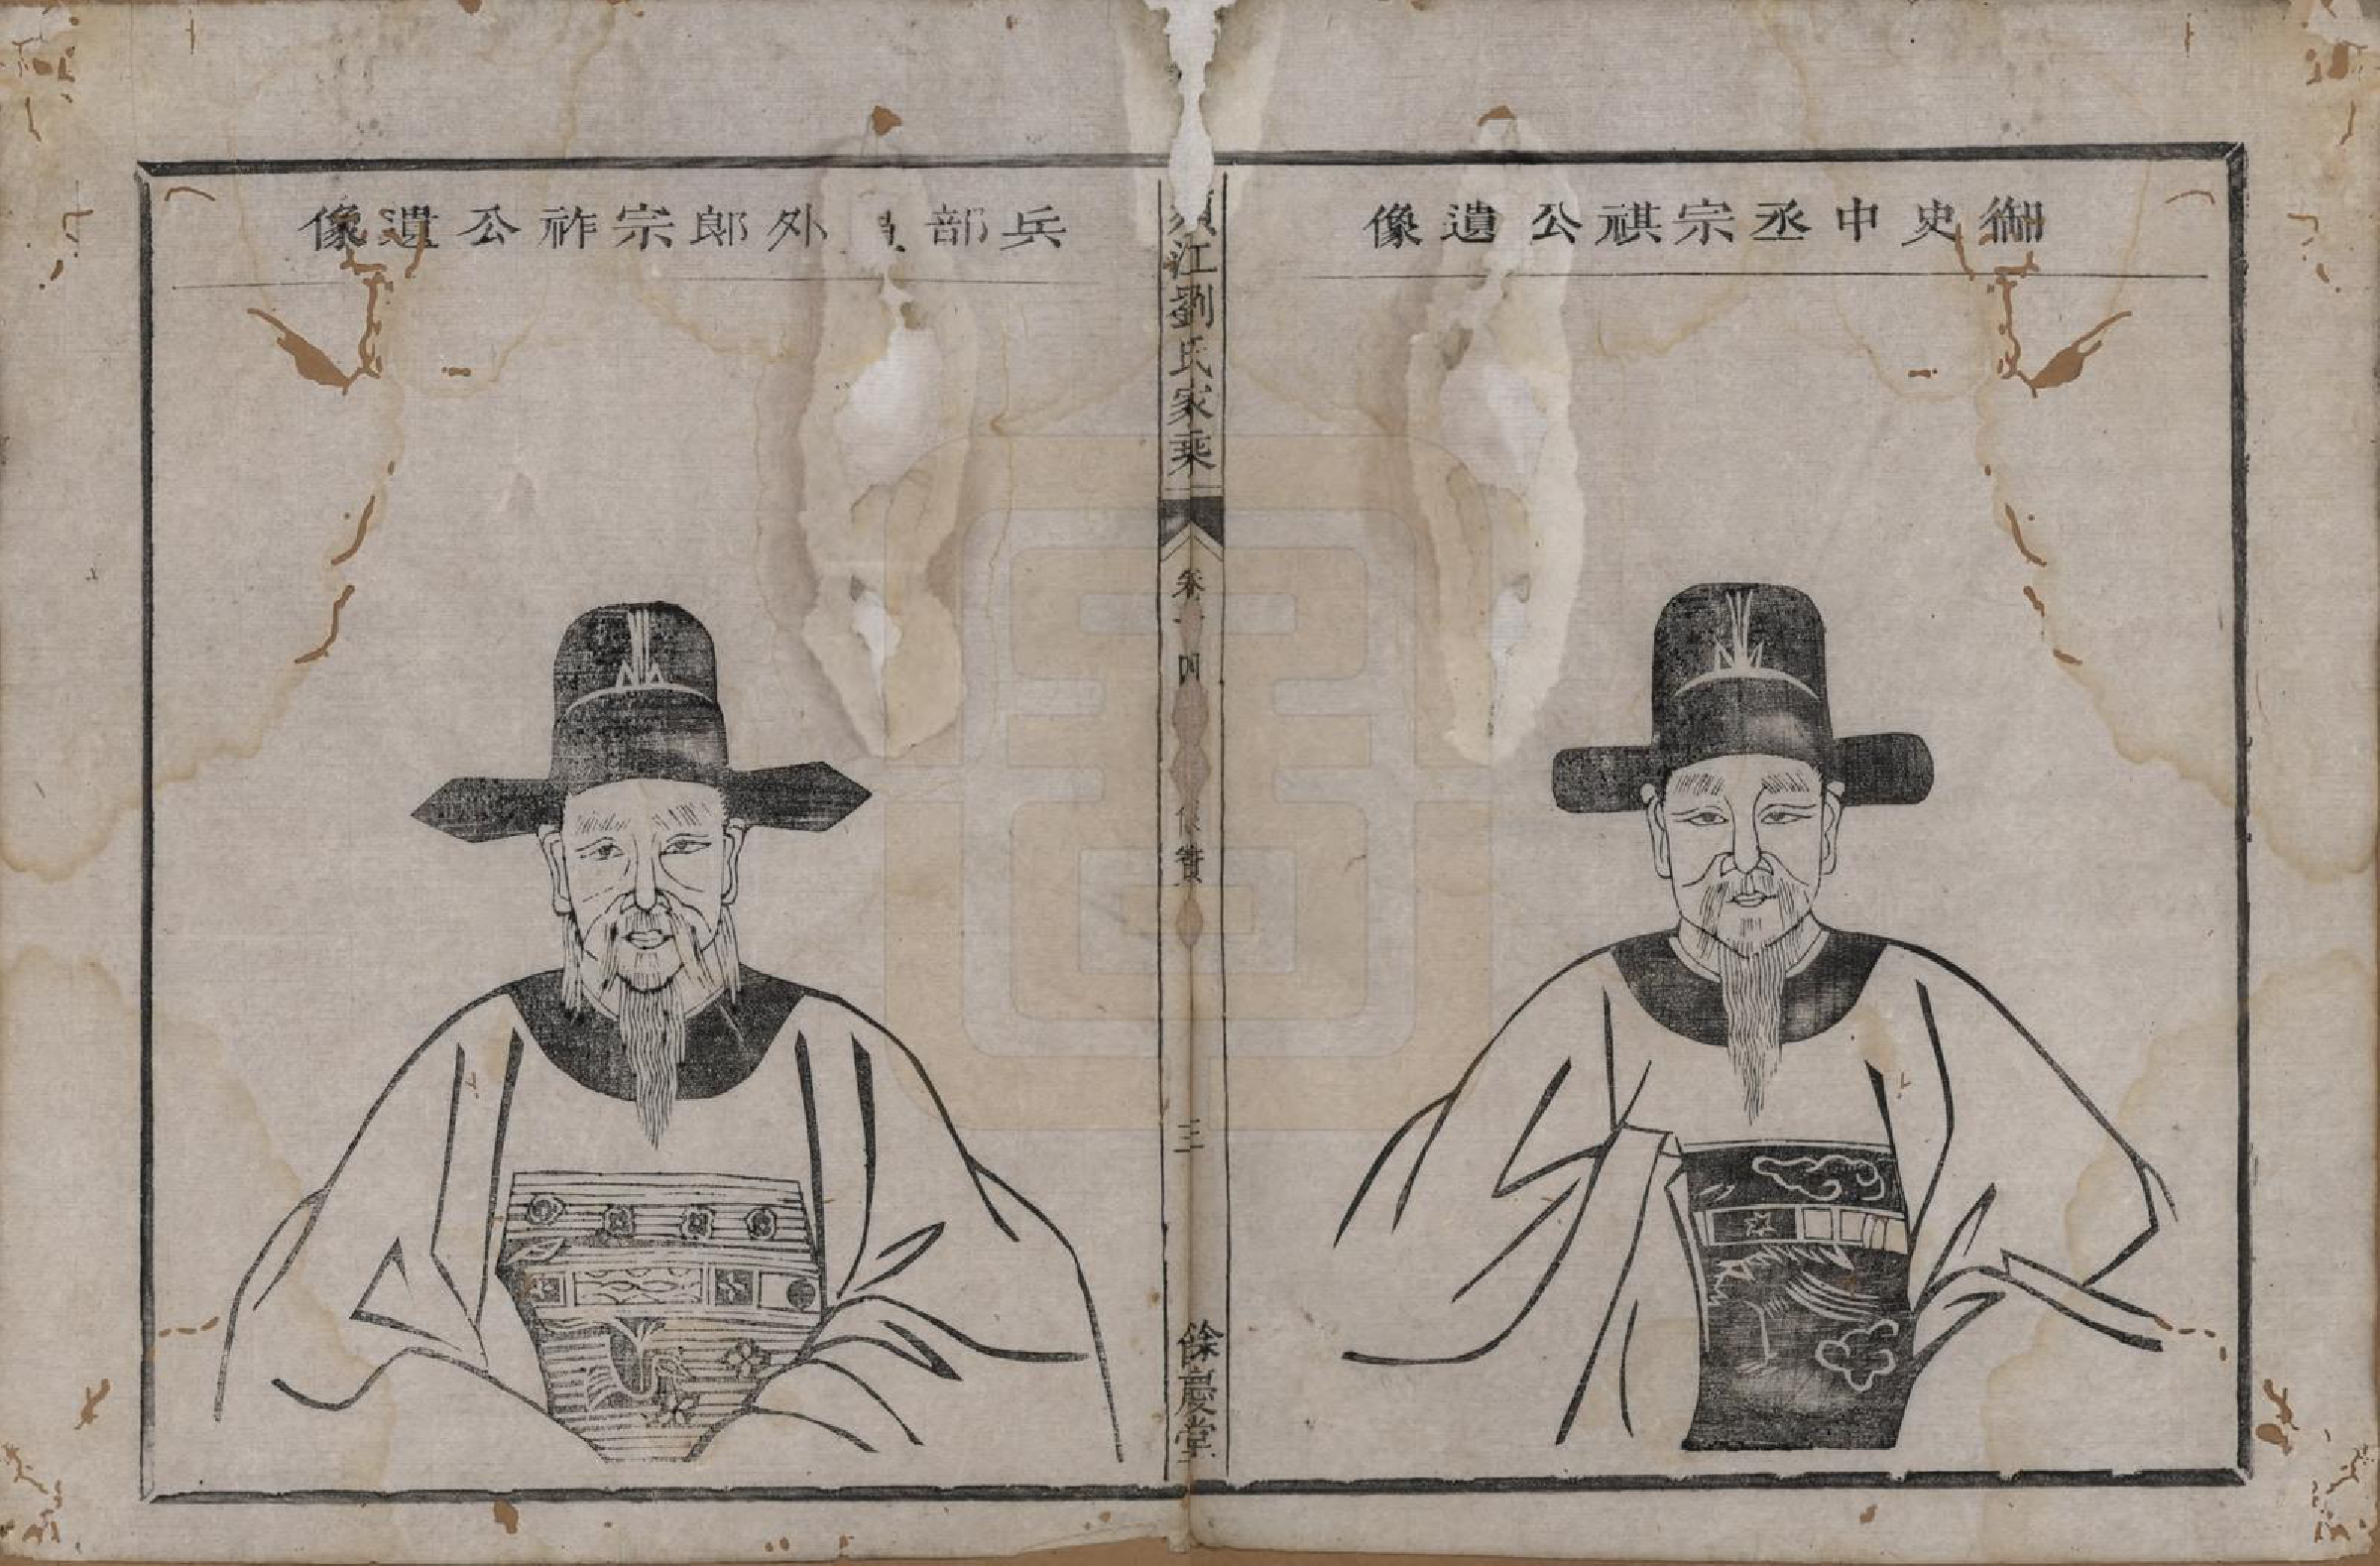 御史中丞宗祺公遺像
江劉氏家乘
卷十四
像贊
三
餘慶堂
兵部員外郎宗祚公遺像